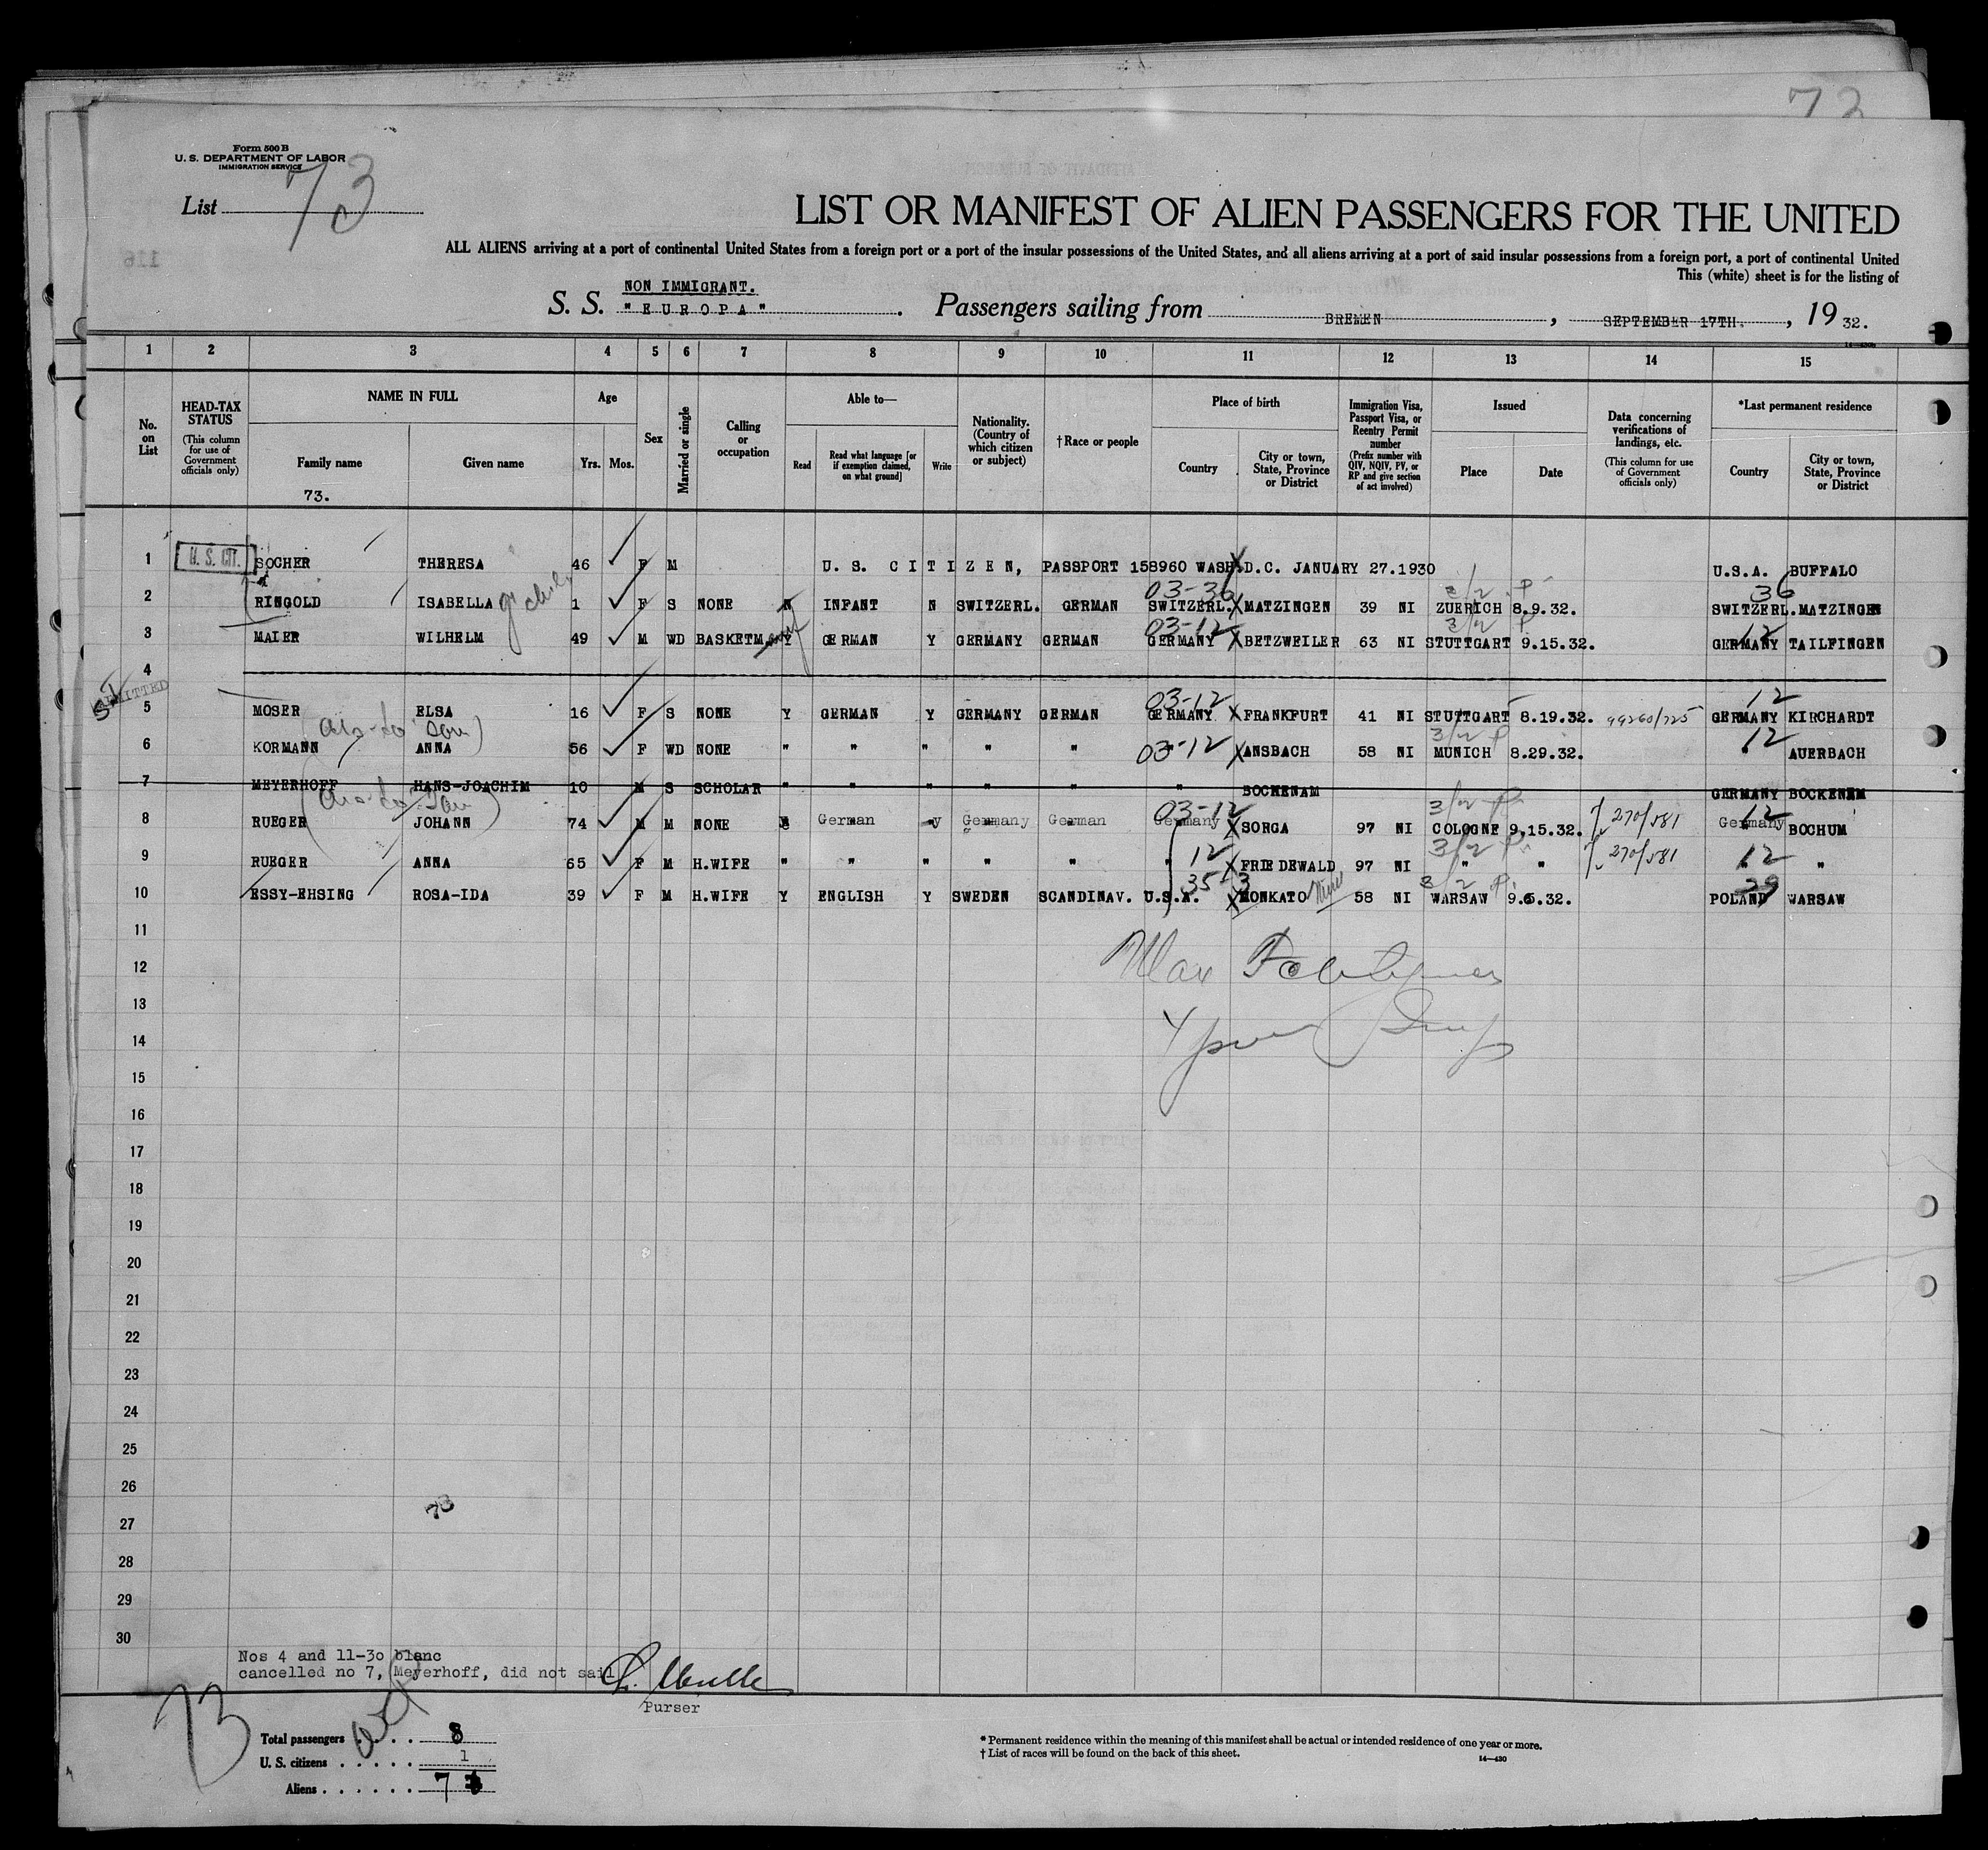 73
Form 500 B
U. S. DEPARTMENT OF LABOR
IMMIGRATION SERVICE
List 73
LIST OR MANIFEST OF ALIEN PASSENGERS FOR THE UNITED
ALL ALIENS arriving at a port of continental United States from a foreign port or a port of the insular possessions of the United States, and all aliens arriving at a port of said insular possessions from a foreign port, a port of continental United
This (white) sheet is for the listing of
NON IMMIGRANT.
S. S. "EUROPA". Passengers sailing from BREMEN, SEPTEMBER 17TH., 1932.
1 2 3 4 5 6 7 8 9 10 11 12 13 14 15
No. on List
HEAD-TAX STATUS (This column for use of Government officials only)
NAME IN FULL
Family name
Given name
73.
Age
Yrs. Mos.
Sex
Married or single
Calling or occupation
Able to—
Read
Read what language [or if exemption claimed, on what ground]
Write
Nationality. (Country of which citizen or subject)
†Race or people
Place of birth
Country
City or town, State, Province or District
Immigration Visa, Passport Visa, or Reentry Permit number (Prefix number with QIV, NQIV, PV, or RP and give section of act involved)
Issued
Place
Date
Data concerning verifications of landings, etc. (This column for use of Government officials only)
*Last permanent residence
Country
City or town, State, Province or District
1 U. S. CIT. SOCHER THERESA 46 F M U. S. CITIZEN, PASSPORT 158960 WASH. D.C. JANUARY 27.1930 U.S.A. BUFFALO
03-36 3/2 P 36
2 RINGOLD ISABELLA 1 F S NONE N INFANT N SWITZERL. GERMAN SWITZERL. MATZINGEN 39 NI ZUERICH 8.9.32. SWITZERL. MATZINGEN
03-12 3/2 P 12
3 MAIER WILHELM 49 M WD BASKETM. Y GERMAN Y GERMANY GERMAN GERMANY BETZWEILER 63 NI STUTTGART 9.15.32. GERMANY TAILFINGEN
4
ADMITTED
03-12 12
5 MOSER ELSA 16 F S NONE Y GERMAN Y GERMANY GERMAN GERMANY FRANKFURT 41 NI STUTTGART 8.19.32. 99260/725 GERMANY KIRCHARDT
3/2 P
6 KORMANN ANNA 56 F WD NONE " " " " " 03-12 ANSBACH 58 NI MUNICH 8.29.32. 12 AUERBACH
7 MEYERHOFF HANS-JOACHIM 10 M S SCHOLAR " " " " " " BOCKENAM GERMANY BOCKENEM
03-12 3/2 P 12
8 RUEGER JOHANN 74 M M NONE German y Germany German Germany SORGA 97 NI COLOGNE 9.15.32. 270/581 Germany BOCHUM
3/2 P
9 RUEGER ANNA 65 F M H.WIFE " " " " " " 12 FRIEDEWALD 97 NI " " 270/581 12 "
35-3 3/2 P. 29
10 ESSY-EHSING ROSA-IDA 39 F M H.WIFE Y ENGLISH Y SWEDEN SCANDINAV. U.S.A. MONKATO 58 NI WARSAW 9.6.32. POLAND WARSAW
11
12 Max
13
14
15
16
17
18
19
20
21
22
23
24
25
26
73
27
28
29
30
Nos 4 and 11-30 blanc
cancelled no 7, Meyerhoff, did not sail
Purser
73
Total passengers . . . . 8
U. S. citizens . . . . . 1
Aliens . . . . . . 7
* Permanent residence within the meaning of this manifest shall be actual or intended residence of one year or more.
† List of races will be found on the back of this sheet.
14—430